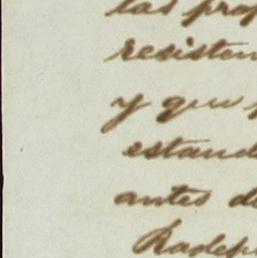 las prop
resisten
y que
estand
antes de
Radep